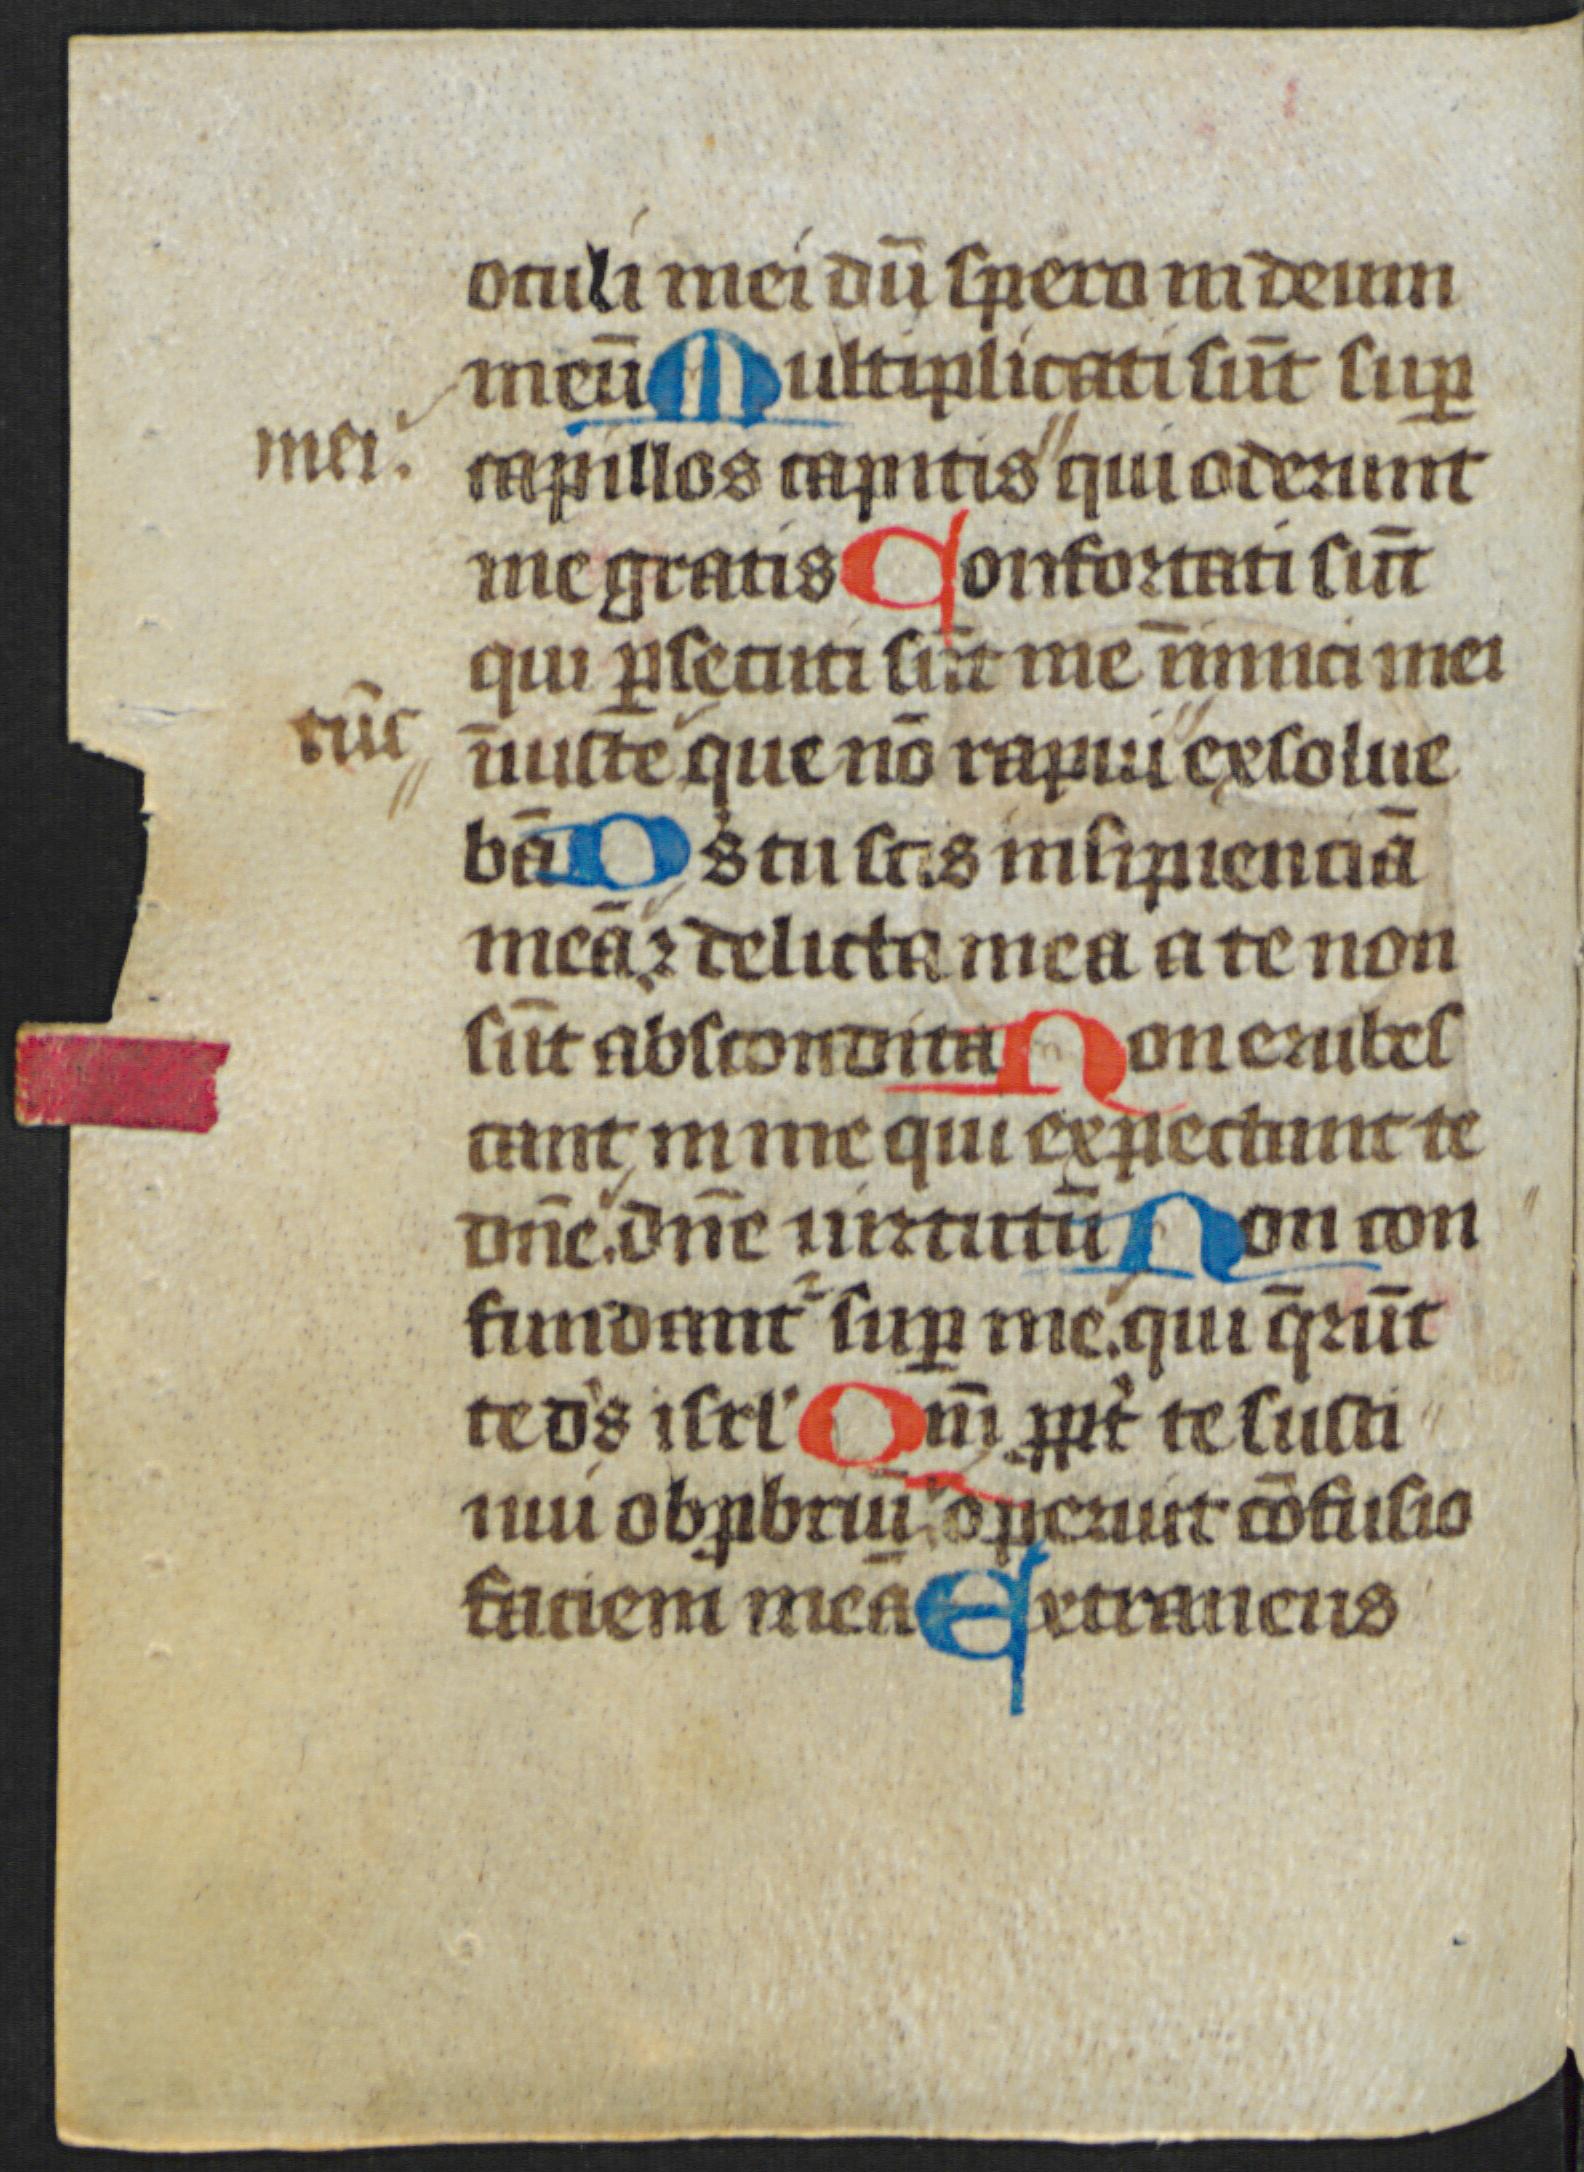 oculi mei dū spero in deum
meū Multiplicati sūt sup̱
mei.
capillos capitis qui oderunt
me gratis Confortati sūt
qui p̱secuti sūt me īimici mei
tūc
īiuste que nō rapui exsolue
bā Ds tu scis insipienciā
meā ⁊ delicta mea a te non
sūt abscondita Non erubes
cant in me qui expectant te
dn̄e dn̄e uirtutū Non con
fundant᷑ sup̱ me qui q̄rūt
te ds isrl' Qm̄ ꝓpt̾ te susti
nui obꝓbriū operuit cōfusio
faciem meā Extraneus